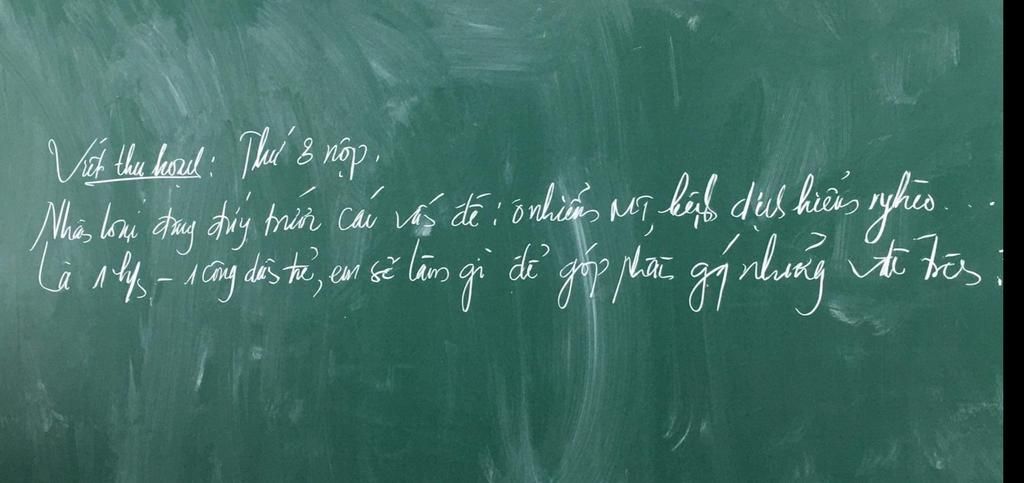 Viết thu hoạch: Thứ 3 nộp.
Nhân loại đang đứng trước các vấn đề: ô nhiễm MT, bệnh dịch hiểm nghèo...
Là 1 hs - 1 công dân trẻ, em sẽ làm gì để góp phần những vđề trên?